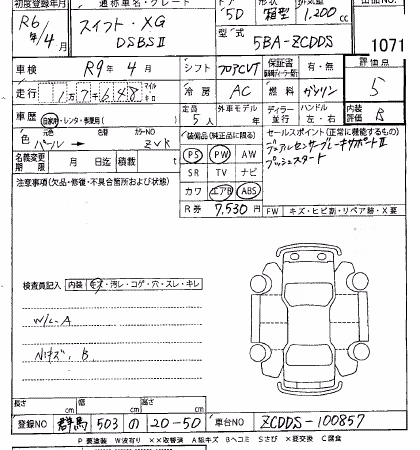 初度登録年月 通称車名・グレード ドア 形状 排気量 出品番号
R6年/4月 スイフト・XG 5D 箱型 1,200cc
DSBSⅡ 型式 5BA-ZCDDS 1071
車検 R9年 4月 シフト フロアCVT 保証書 有・無 評価点
走行 1万7千648 マイル キロ 冷房 AC 燃料 ガソリン 5
車歴 自家用・レンタ・事業用( ) 定員 5人 外車モデル 年 ディーラー 並行 ハンドル 左・右 内装 B
色 元色 パール → 色替 カラーNO ZVR 装備品(純正品に限る) セールスポイント(正常に機能するもの)
名義変更期限 月 日迄 積載 t PS PW AW デュアルセンサーブレーキサポートⅡ
プッシュスタート
注意事項(欠品・修復・不具合箇所および状態) SR TV ナビ
カワ エアB ABS
R券 7,530円 FW キズ・ヒビ割・リペア跡・X(要交換)
検査員記入 内装 キズ・汚レ・コゲ・穴・スレ・キレ
W/L-A
小キズ、B
長さ cm 幅 cm 高さ cm
登録NO 群馬 503 の 20-50 車台NO ZCDDS-100857
P 要塗装 W波有り ××取替済 A線キズ Bヘコミ Sさび ×要交換 C腐食